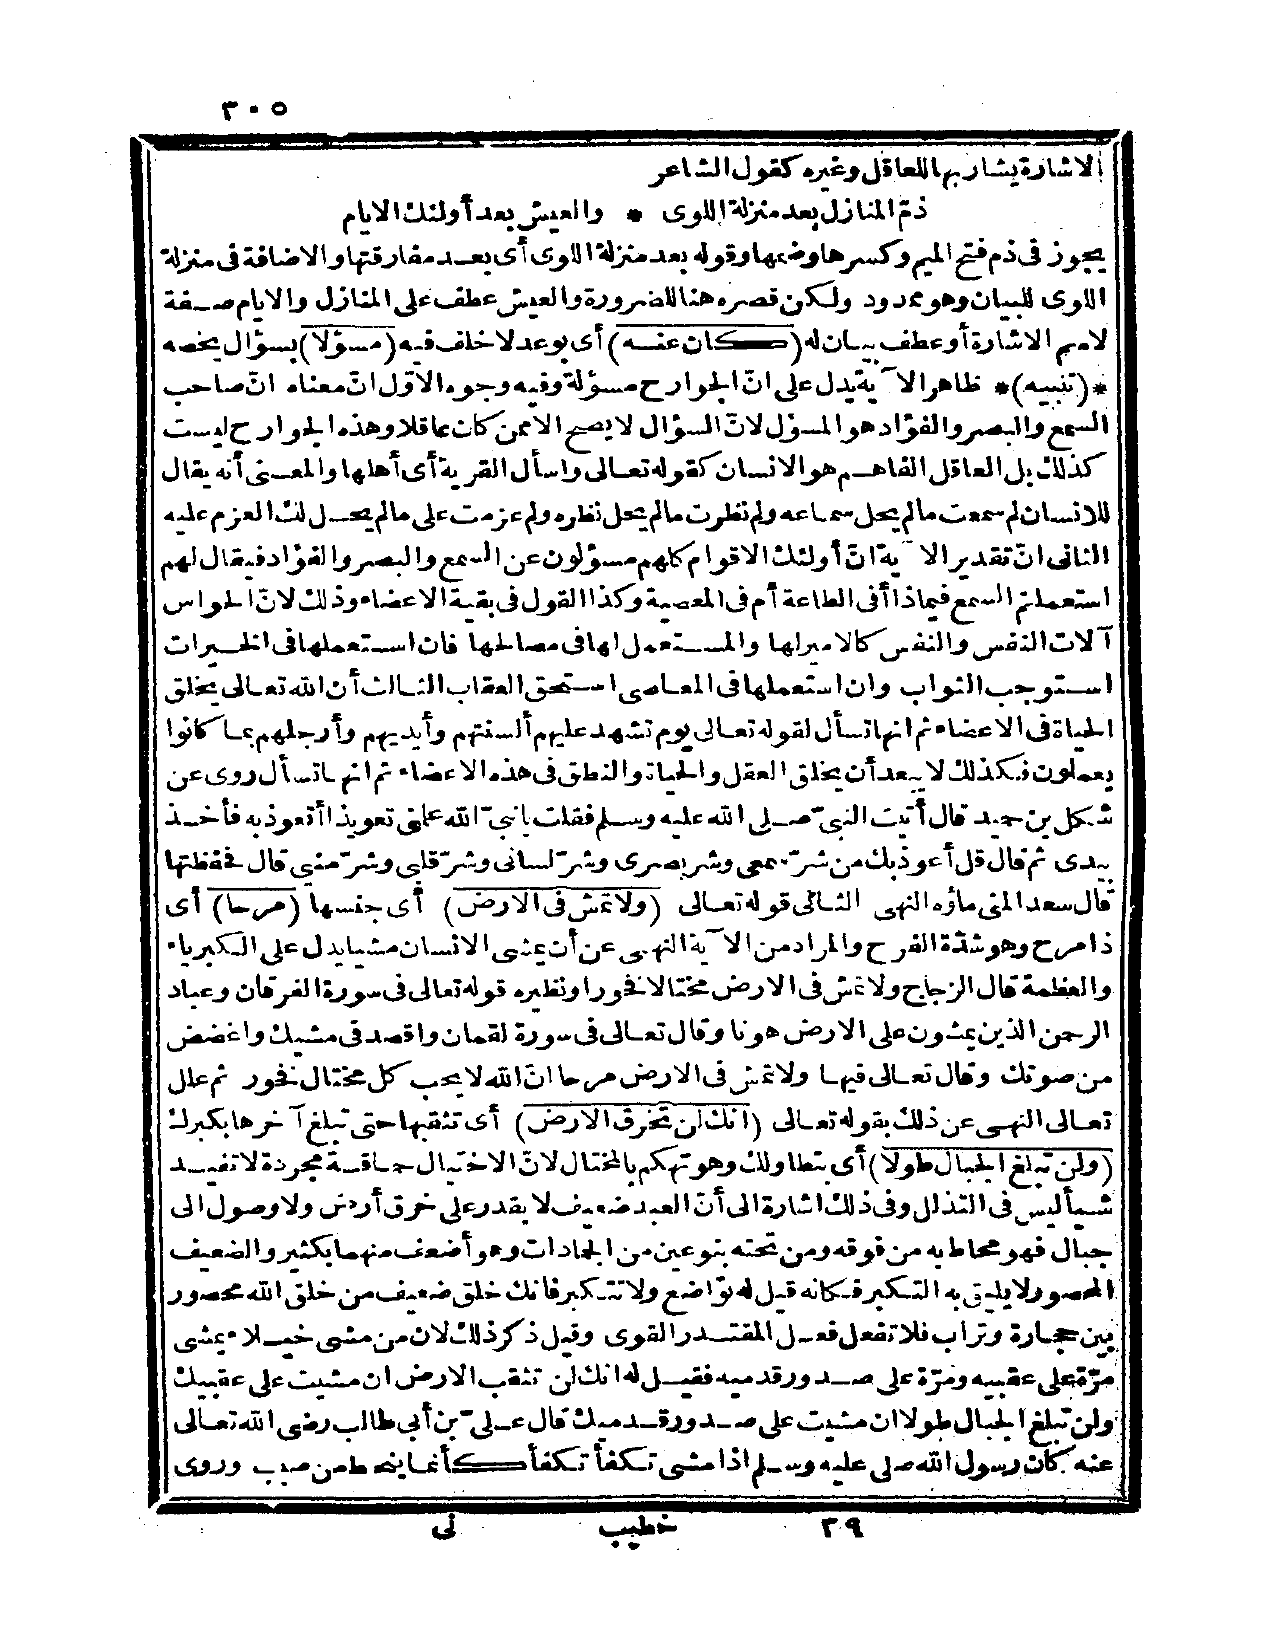 ٣٠٥
الاشارة يشار بها للعاقل وغيره كقول الشاعر
ذمّ المنازل بعد منزلة اللوى * والعيش بعد أولئك الايام
يجوز فى ذم فتح الميم وكسرها وضمها وقوله بعد منزلة اللوى أى بعد مفارقتها والاضافة فى منزلة
اللوى للبيان وهو ممدود ولكن قصره هنا للضرورة والعيش عطف على المنازل والايام صفة
لاسم الاشارة أو عطف بيان له (كان عنه) أى بوعد لا خلف فيه (مسؤلا) بسؤال يخصه
*(تنبيه)* ظاهر الآية يدل على انّ الجوارح مسؤلة وفيه وجوه الاوّل انّ معناه انّ صاحب
السمع والبصر والفؤاد هو المسؤل لانّ السؤال لا يصح الا ممن كان عاقلا وهذه الجوارح ليست
كذلك بل العاقل الفاهم هو الانسان كقوله تعالى واسأل القرية أى أهلها والمعنى أنه يقال
للانسان لم سمعت ما لم يحل سماعه ولم نظرت ما لم يحل نظره ولم عزمت على ما لم يحل لك العزم عليه
الثانى انّ تقدير الآية انّ أولئك الاقوام كلهم مسؤلون عن السمع والبصر والفؤاد فيقال لهم
استعملتم السمع فيماذا أفى الطاعة أم فى المعصية وكذا القول فى بقية الاعضاء وذلك لانّ الحواس
آلات النفس والنفس كالامير لها والمستعمل لها فى مصالحها فان استعملها فى الخيرات
استوجب الثواب وان استعملها فى المعاصى استحق العقاب الثالث أن الله تعالى يخلق
الحياة فى الاعضاء ثم انها تسأل لقوله تعالى يوم تشهد عليهم ألسنتهم وأيديهم وأرجلهم بما كانوا
يعملون فكذلك لا يبعد أن يخلق العقل والحياة والنطق فى هذه الاعضاء ثم انها تسأل روى عن
شكل بن حميد قال أتيت النبىّ صلى الله عليه وسلم فقلت يا نبىّ الله علمنى تعويذا أتعوذ به فأخذ
بيدى ثم قال قل أعوذ بك من شرّ سمعى وشر بصرى وشرّ لسانى وشرّ قلبى وشرّ منيى قال فحفظتها
قال سعد المنى ماؤه النهى الثالى قوله تعالى (ولا تمش فى الارض) أى جنسها (مرحا) أى
ذا مرح وهو شدّة الفرح والمراد من الآية النهى عن أن يمشى الانسان مشيا يدل على الكبرياء
والعظمة قال الزجاج ولا تمش فى الارض مختالا فخورا ونظيره قوله تعالى فى سورة الفرقان وعباد
الرحمن الذين يمشون على الارض هونا وقال تعالى فى سورة لقمان واقصد فى مشيك واغضض
من صوتك وقال تعالى فيها ولا تمش فى الارض مرحا انّ الله لا يحب كل مختال فخور ثم علل
تعالى النهى عن ذلك بقوله تعالى (انك لن تخرق الارض) أى تثقبها حتى تبلغ آخرها بكبرك
(ولن تبلغ الجبال طولا) أى بتطاولك وهو تهكم بالمختال لانّ الاختيال حماقة مجردة لا تفيد
شيأ ليس فى التذلل وفى ذلك اشارة الى أنّ العبد ضعيف لا يقدر على خرق أرض ولا وصول الى
جبال فهو محاط به من فوقه ومن تحته بنوعين من الجمادات وهو أضعف منهما بكثير والضعيف
المحصور لا يليق به التكبر فكانه قيل له تواضع ولا تتكبر فانك خلق ضعيف من خلق الله محصور
بين حجارة وتراب فلا تفعل فعل المقتدر القوى وقيل ذكر ذلك لان من مشى خيلاء يمشى
مرّة على عقبيه ومرّة على صدور قدميه فقيل له انك لن تثقب الارض ان مشيت على عقبيك
ولن تبلغ الجبال طولا ان مشيت على صدور قدميك قال علىّ بن أبى طالب رضى الله تعالى
عنه كان رسول الله صلى عليه وسلم اذا مشى تكفأ تكفأ كأنما ينحط من صبب وروى
٣٩ خطيب نى